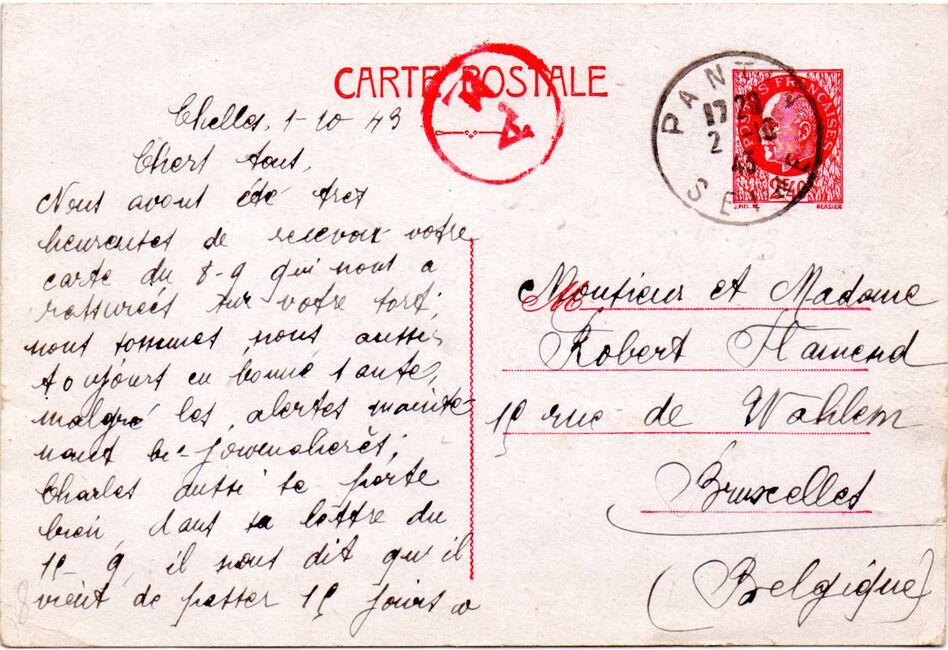 CARTE POSTALE
Chelles, 1-10-43
Chers tous,
Nous avons été très
heureuses de recevoir votre
carte du 8-9 qui nous a
rassurées sur votre sort;
nous sommes nous aussi
toujours en bonne santé,
malgré les alertes mainte-
nant bi-journalières;
Charles aussi se porte
bien dans sa lettre du
15-9, il nous dit qu'il
vient de passer 15 jours
PANTIN
17 20
2 10
43
SEINE
POSTES FRANÇAISES
2F40
BERSIER
Monsieur et Madame
Robert Flamend
15 rue de Wahlem
Bruxelles
(Belgique)